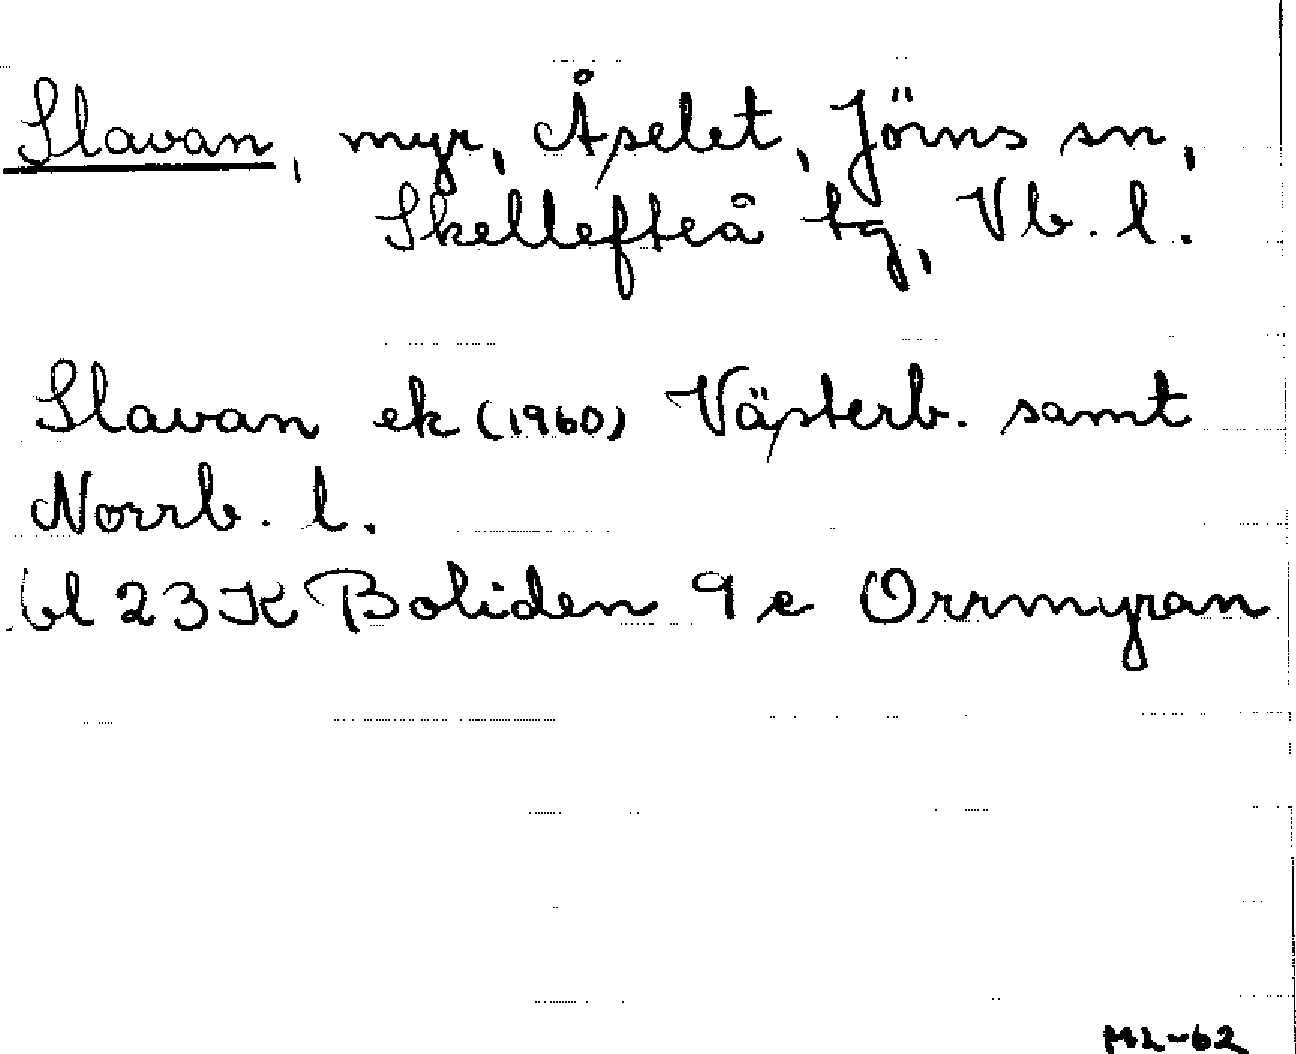 Slavan, myr, Åselet, Jörns sn,
Skellefteå tg, Vb. l.
Slavan ek (1960) Västerb. samt
Norrb. l.
bl 23 K Boliden 9 e Orrmyran
ML-62